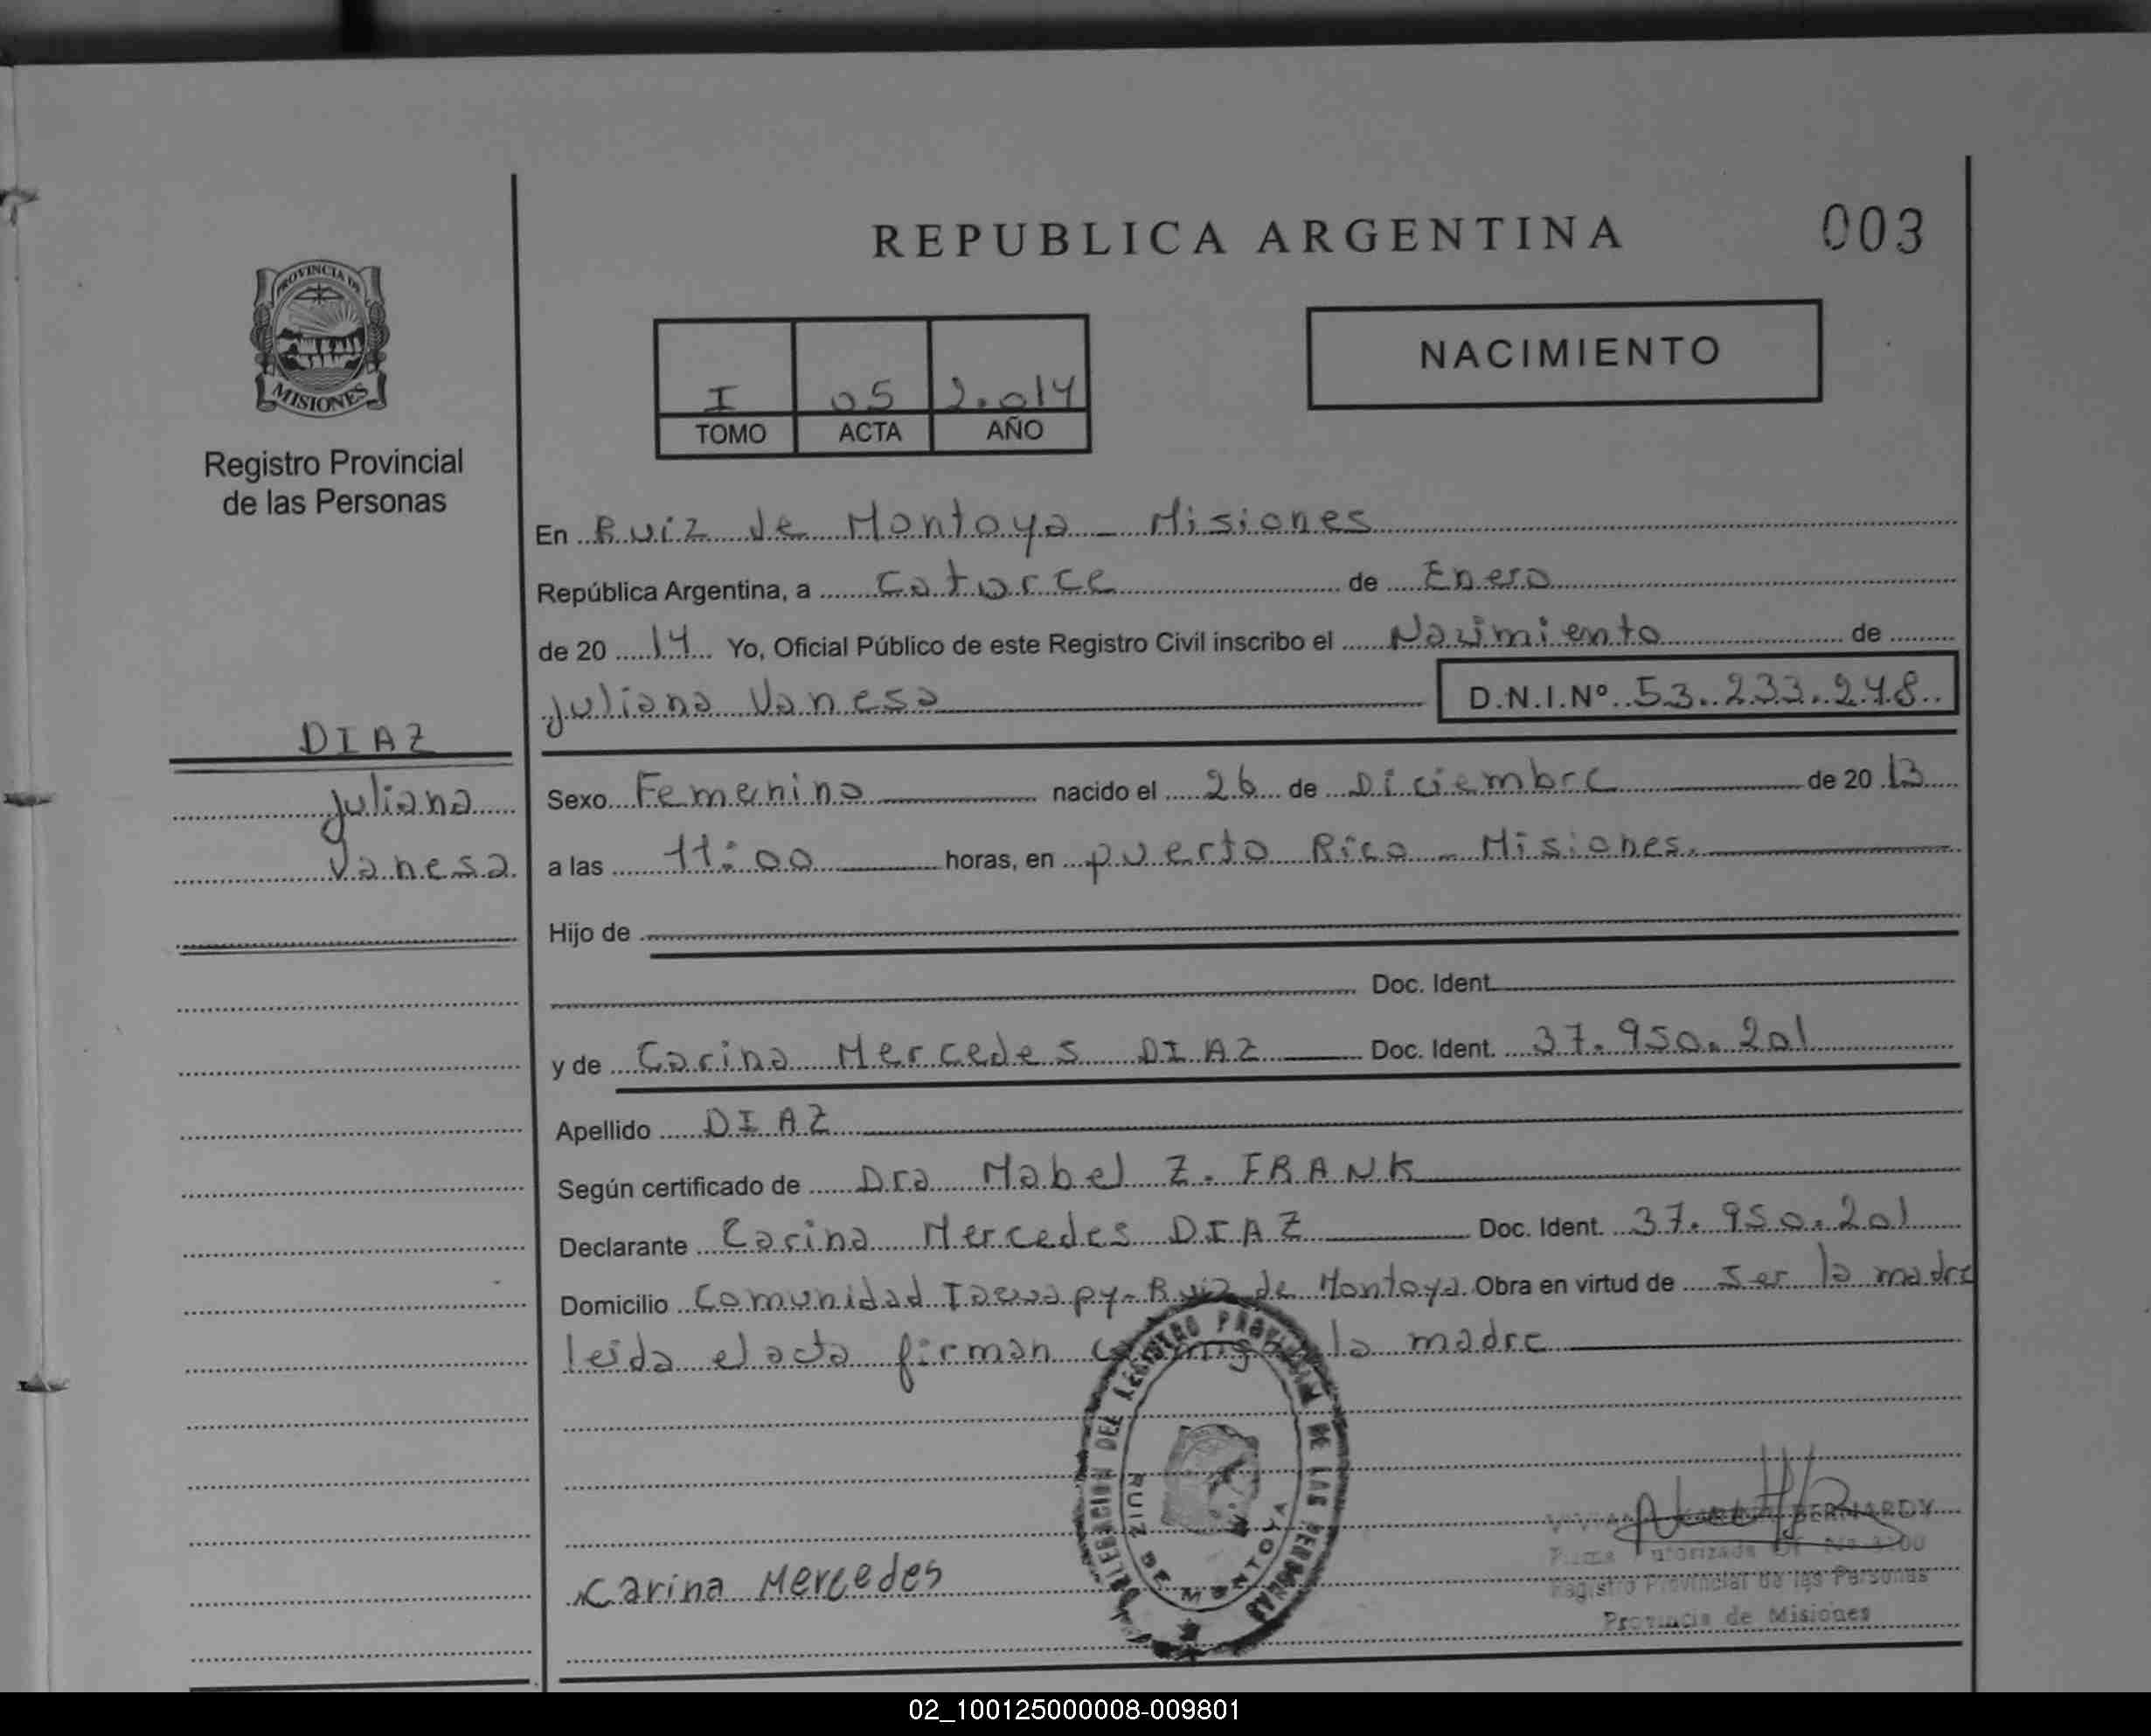 REPUBLICA ARGENTINA
003
PROVINCIA DE
MISIONES
Registro Provincial
de las Personas
NACIMIENTO
I 05 2.014
TOMO ACTA AÑO
En Ruiz de Montoya - Misiones
República Argentina, a Catorce de Enero
de 20 14 Yo, Oficial Público de este Registro Civil inscribo el Nacimiento de
Juliana Vanesa D.N.I.Nº 53.233.248
DIAZ
Juliana
Vanesa
Sexo Femenino nacido el 26 de Diciembre de 20 13
a las 11:00 horas, en puerto Rico - Misiones.
Hijo de
Doc. Ident.
y de Carina Mercedes DIAZ Doc. Ident. 37.950.201
Apellido DIAZ
Según certificado de Dra Mabel Z. FRANK
Declarante Carina Mercedes DIAZ Doc. Ident. 37.950.201
Domicilio Comunidad - Ruiz de Montoya. Obra en virtud de Ser la madre
leida el acta firman la madre
DELEGACION DEL REGISTRO PROVINCIAL DE LAS PERSONAS
RUIZ DE MONTOYA
BERNARDY
Firma Autorizada
Registro Provincial de las Personas
Provincia de Misiones
Carina Mercedes
02_100125000008-009801